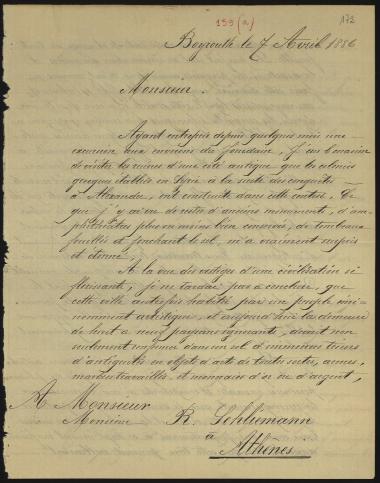 159 (a)
172
Beyrouth le 7 Avril 1886
Monsieur.
Ayant entrepris depuis quelques mois une
excursion aux environs du Jourdain, j'eus l'occasion
de visiter les ruines d'une cité antique que les colonies
grecques établies en Syrie à la suite des conquêtes
d'Alexandre, ont construite dans cette contrée. Ce
que j'y ai vu de restes d'anciens monuments, d'am-
phithéâtres plus ou moins bien conservés, de tombeaux
fouillés et jonchant le sol, m'a vraiment surpris
et étonné.
A la vue des vestiges d'une civilisation si
florissante, je ne tardai pas à conclure, que
cette ville autrefois habitée par un peuple émi-
nemment artistique, et aujourd'hui la demeure
de huit à neuf paysans ignorants, devait non
seulement renfermer dans son sol d'immenses trésors
d'antiquités en objets d'arts de toutes sortes, armes,
marbres travaillés, et monnaies d'or ou d'argent,
A Monsieur
Monsieur R. Schliemann
à
Athènes